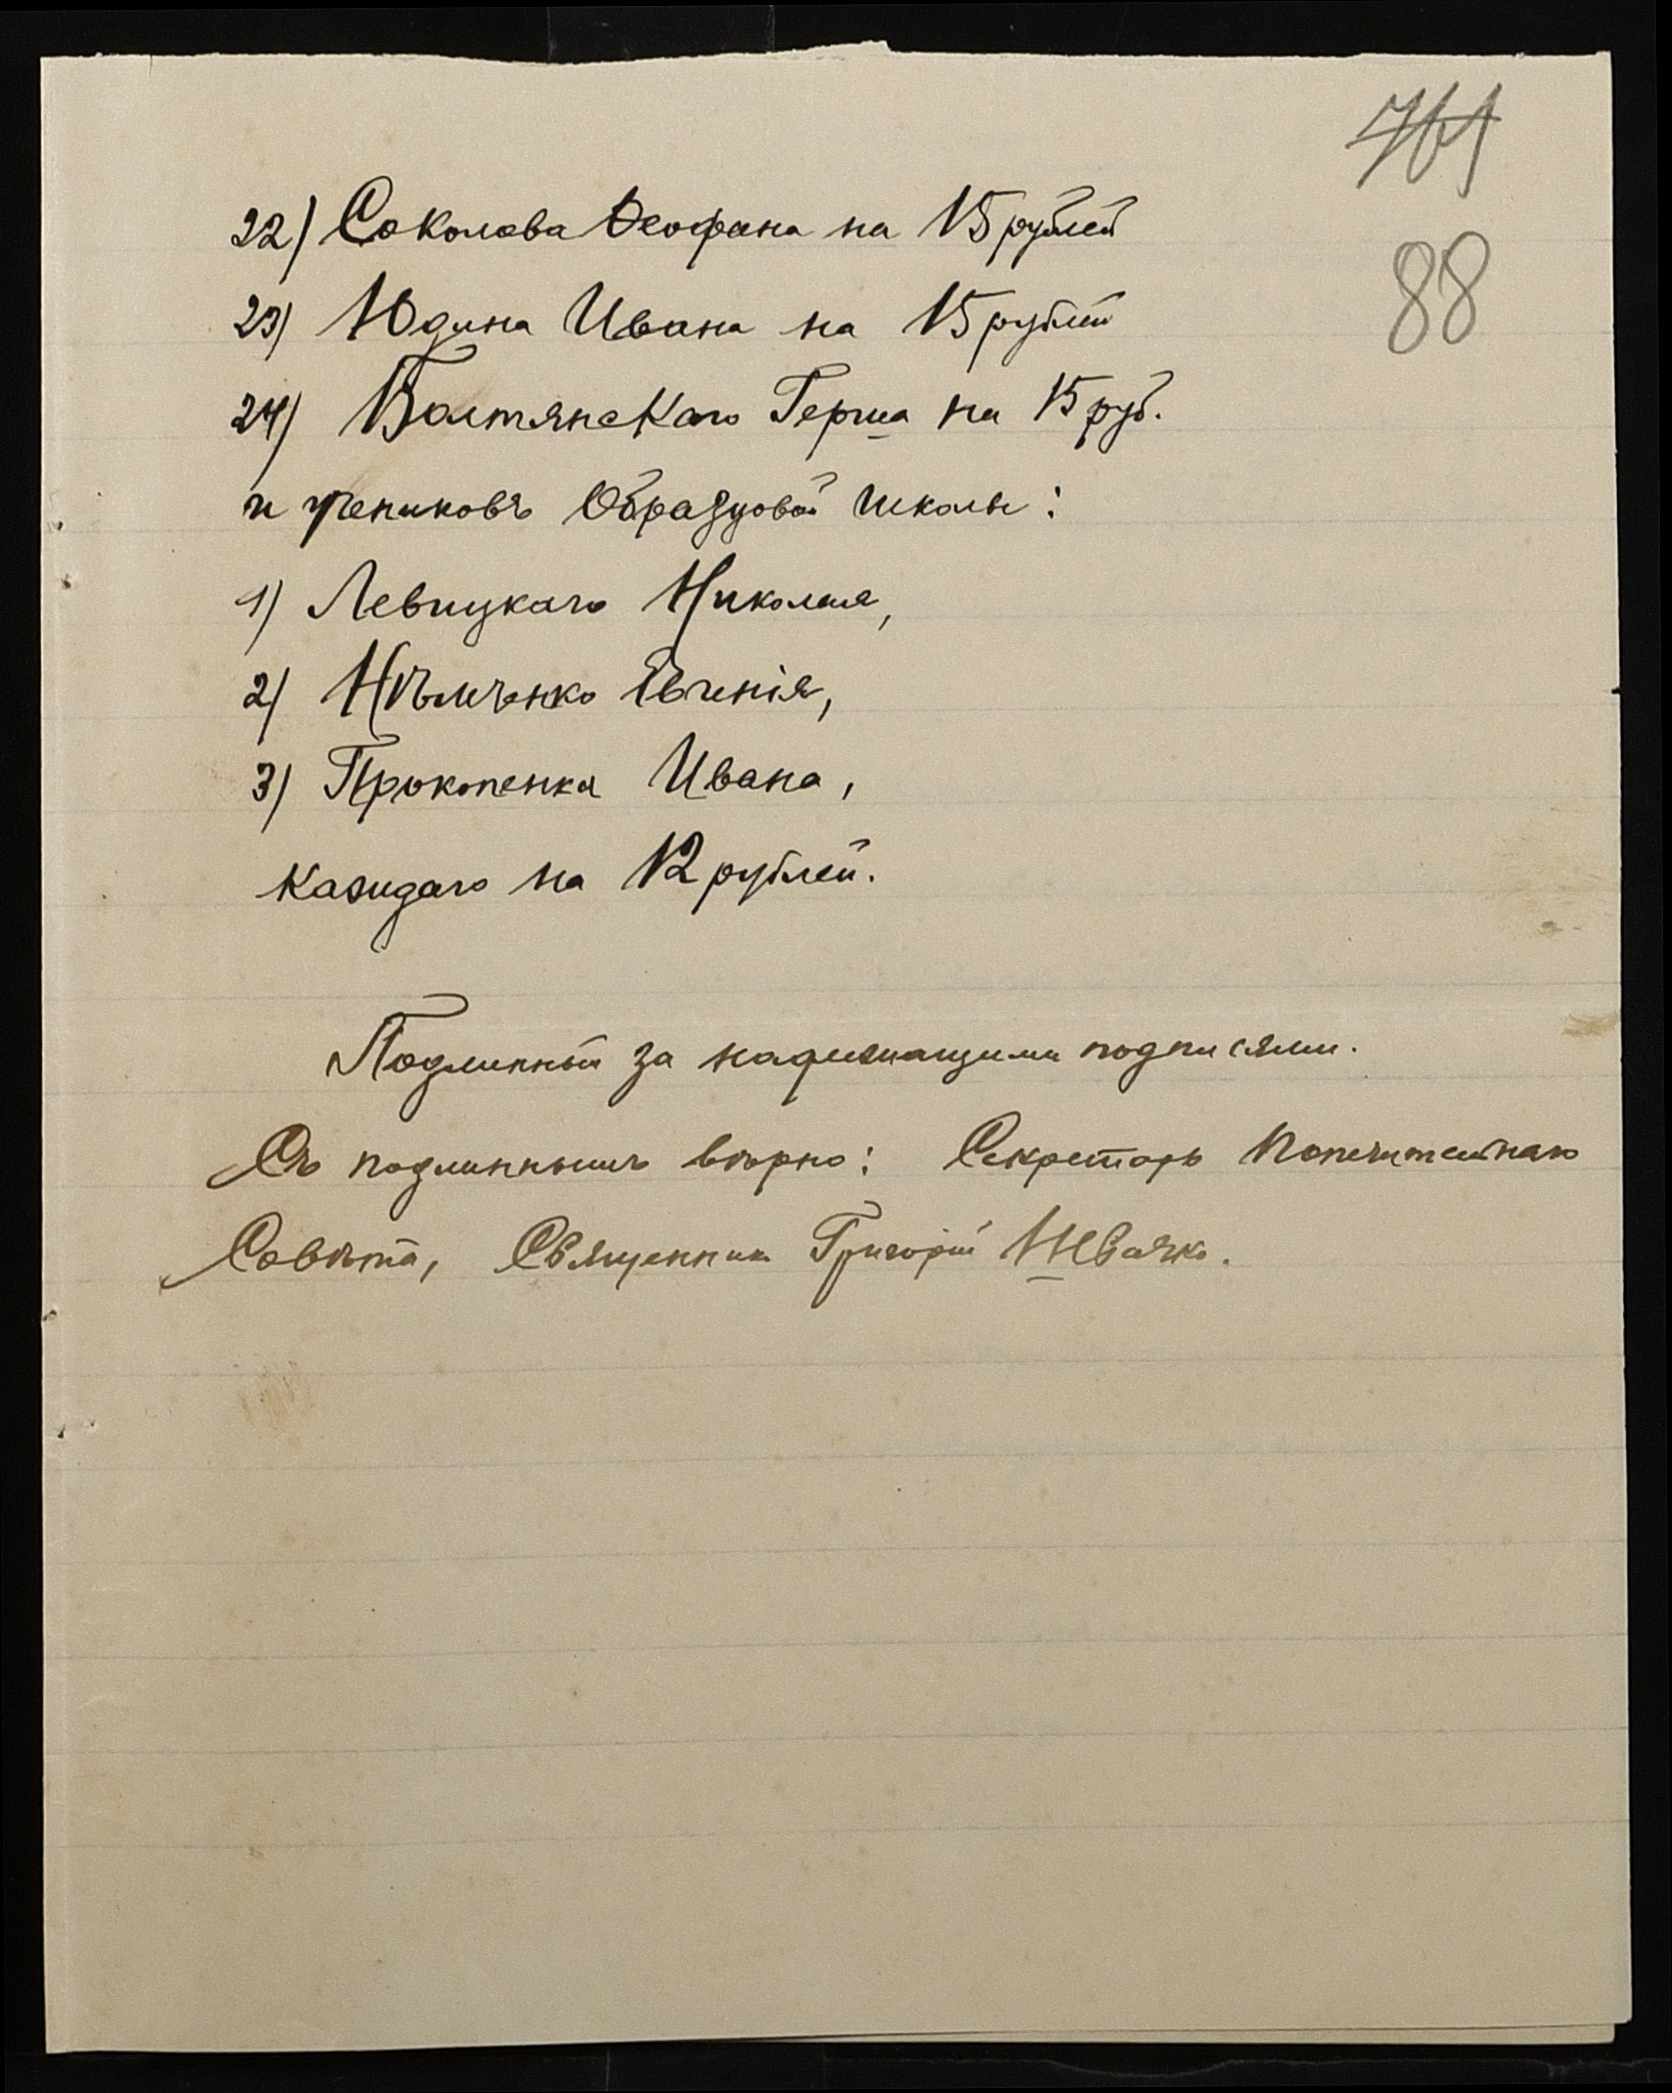 88
22) Соколова Ѳеофана на 15 рублей
23) Юдина Ивана на 15 рублей
24) Балтянскаго Герша на 15 руб.
и учениковъ Образцовой школы:
1) Левицкаго Николая,
2) Нѣмченко Евгенія,
3) Прокопенка Ивана,
каждаго на 12 рублей.
Подлинный за надлежащими подписями.
Съ подлиннымъ вѣрно: Секретарь Попечительнаго
Совѣта, Священникъ Григорій